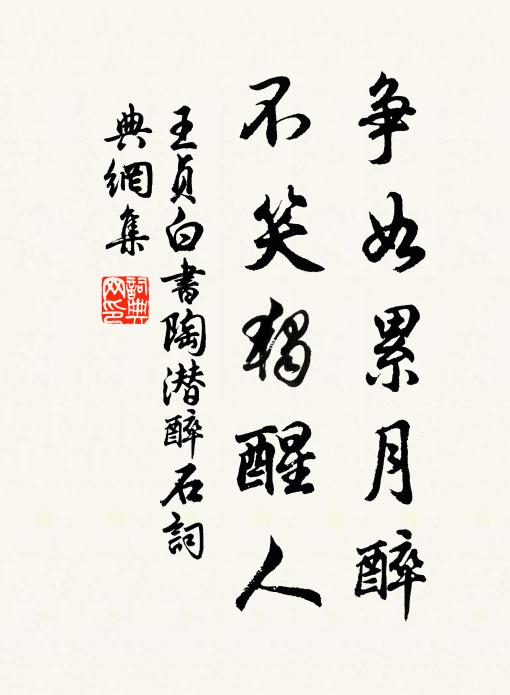 争如累月醉
不笑獨醒人
王貞白書陶潛醉石詞
典網集
詞典
网印